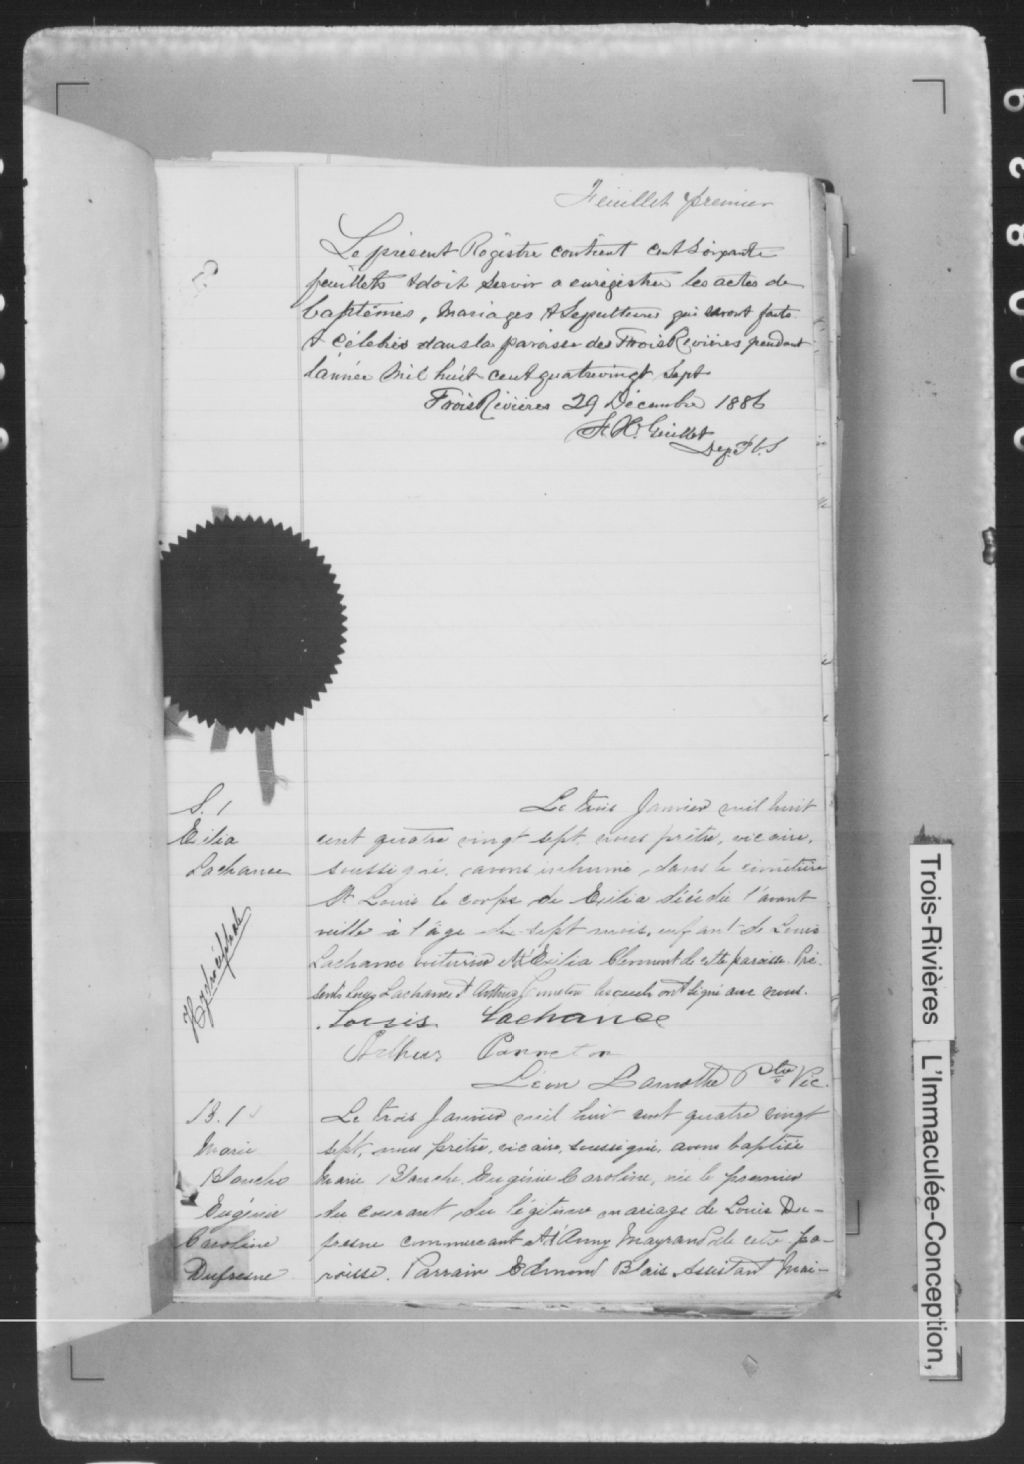 Feuillet premier
Le présent Registre contient cent soixante
feuillets & doit servir a enrégistrer les actes de
baptêmes, mariages & Sepultures qui seront faits
& célébrés dans la paroisse des Trois Rivières pendant
l'année Mil huit cent quatrevingt Sept
Trois Rivières 29 Décembre 1886
F. H. Guillet
Dep. P.C.S
S. 1
Exilia
Lachance
Hydrocéphale
Le trois Janvier mil huit
cent quatre vingt sept, nous prêtre, vicaire,
soussigné, avons inhumé, dans le cimetière
St Louis le corps de Exilia décédée l'avant
veille à l'âge de sept mois, enfant de Louis
Lachance voiturier et d'Exilia Clément de cette paroisse. Pré-
sents Louis Lachance & Arthur Panneton lesquels ont signé avec nous.
Louis Lachance
Arthur Panneton
Léon Lamothe Ptre Vic.
B. 1
Marie
Blanche
Eugénie
Caroline
Dufresne
Le trois Janvier mil huit cent quatre vingt
sept, nous prêtre, vicaire, soussigné, avons baptisé
Marie Blanche Eugénie Caroline, née le premier
du courant du légitime mariage de Louis Du-
fresne commercant et d'Anny Mayrand de cette pa-
roisse. Parrain Edmond Blais Assistant Mai-
Trois-Rivières L'Immaculée-Conception,